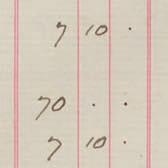 7 10 .
70 . .
7 10 .